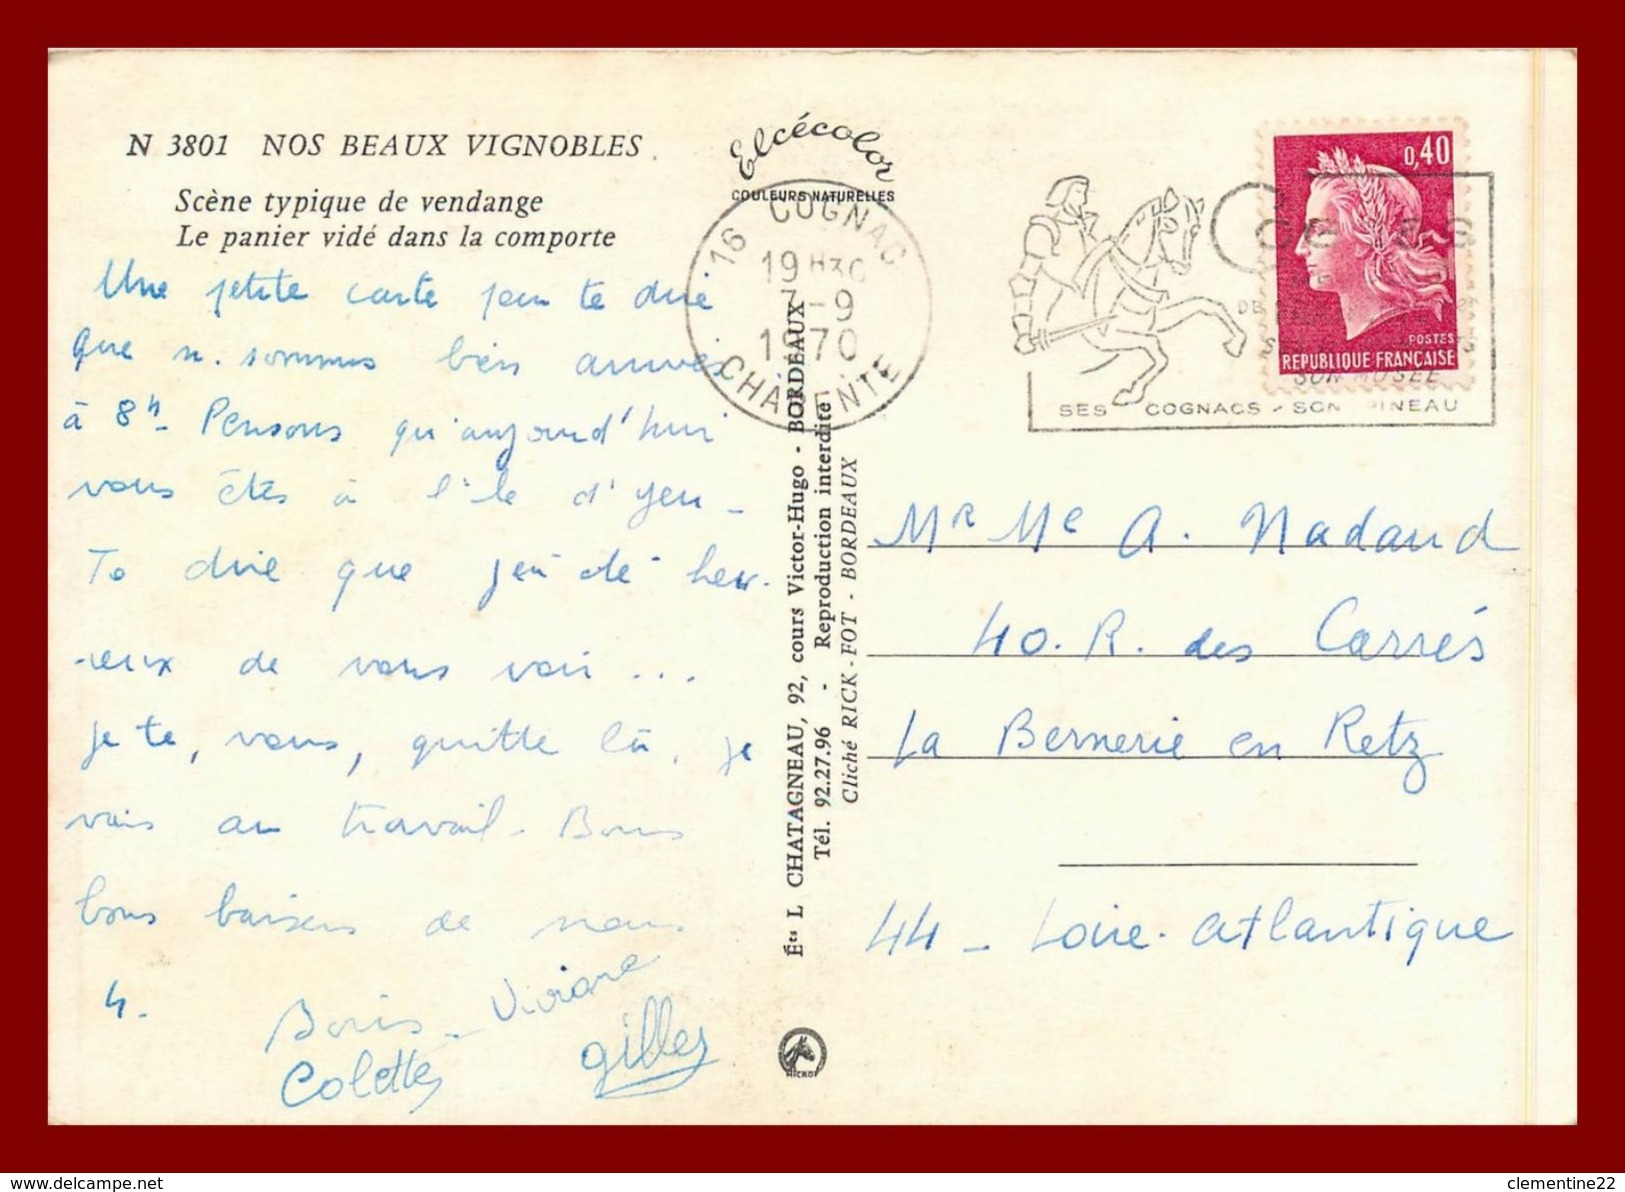 N 3801 NOS BEAUX VIGNOBLES
Scène typique de vendange
Le panier vidé dans la comporte
Une petite carte pour te dire
que n. sommes bien arrivés
à 8h- Pensons qu'aujourd'hui
vous êtes à l'île d'yeu -
Te dire que j'ai été heu-
-reux de vous voir ...
je te, vous, quitte là, je
vais au travail - Bons
bons baisers de nous
4.
Boris - Viviane
Colette gilles
Elcécolor
COULEURS NATURELLES
16 COGNAC
19H30
7-9
1970
CHARENTE
Éts L CHATAGNEAU, 92, cours Victor-Hugo - BORDEAUX
Tél. 92.27.96 - Reproduction interdite
Cliché RICK-FOT - BORDEAUX
MICROF
0,40
POSTES
REPUBLIQUE FRANÇAISE
SON MUSEE
SES COGNACS - SON PINEAU
Mr Me A. Nadaud
40. R. des Carrés
La Bernerie en Retz
44 - Loire-atlantique
www.delcampe.net
clementine22